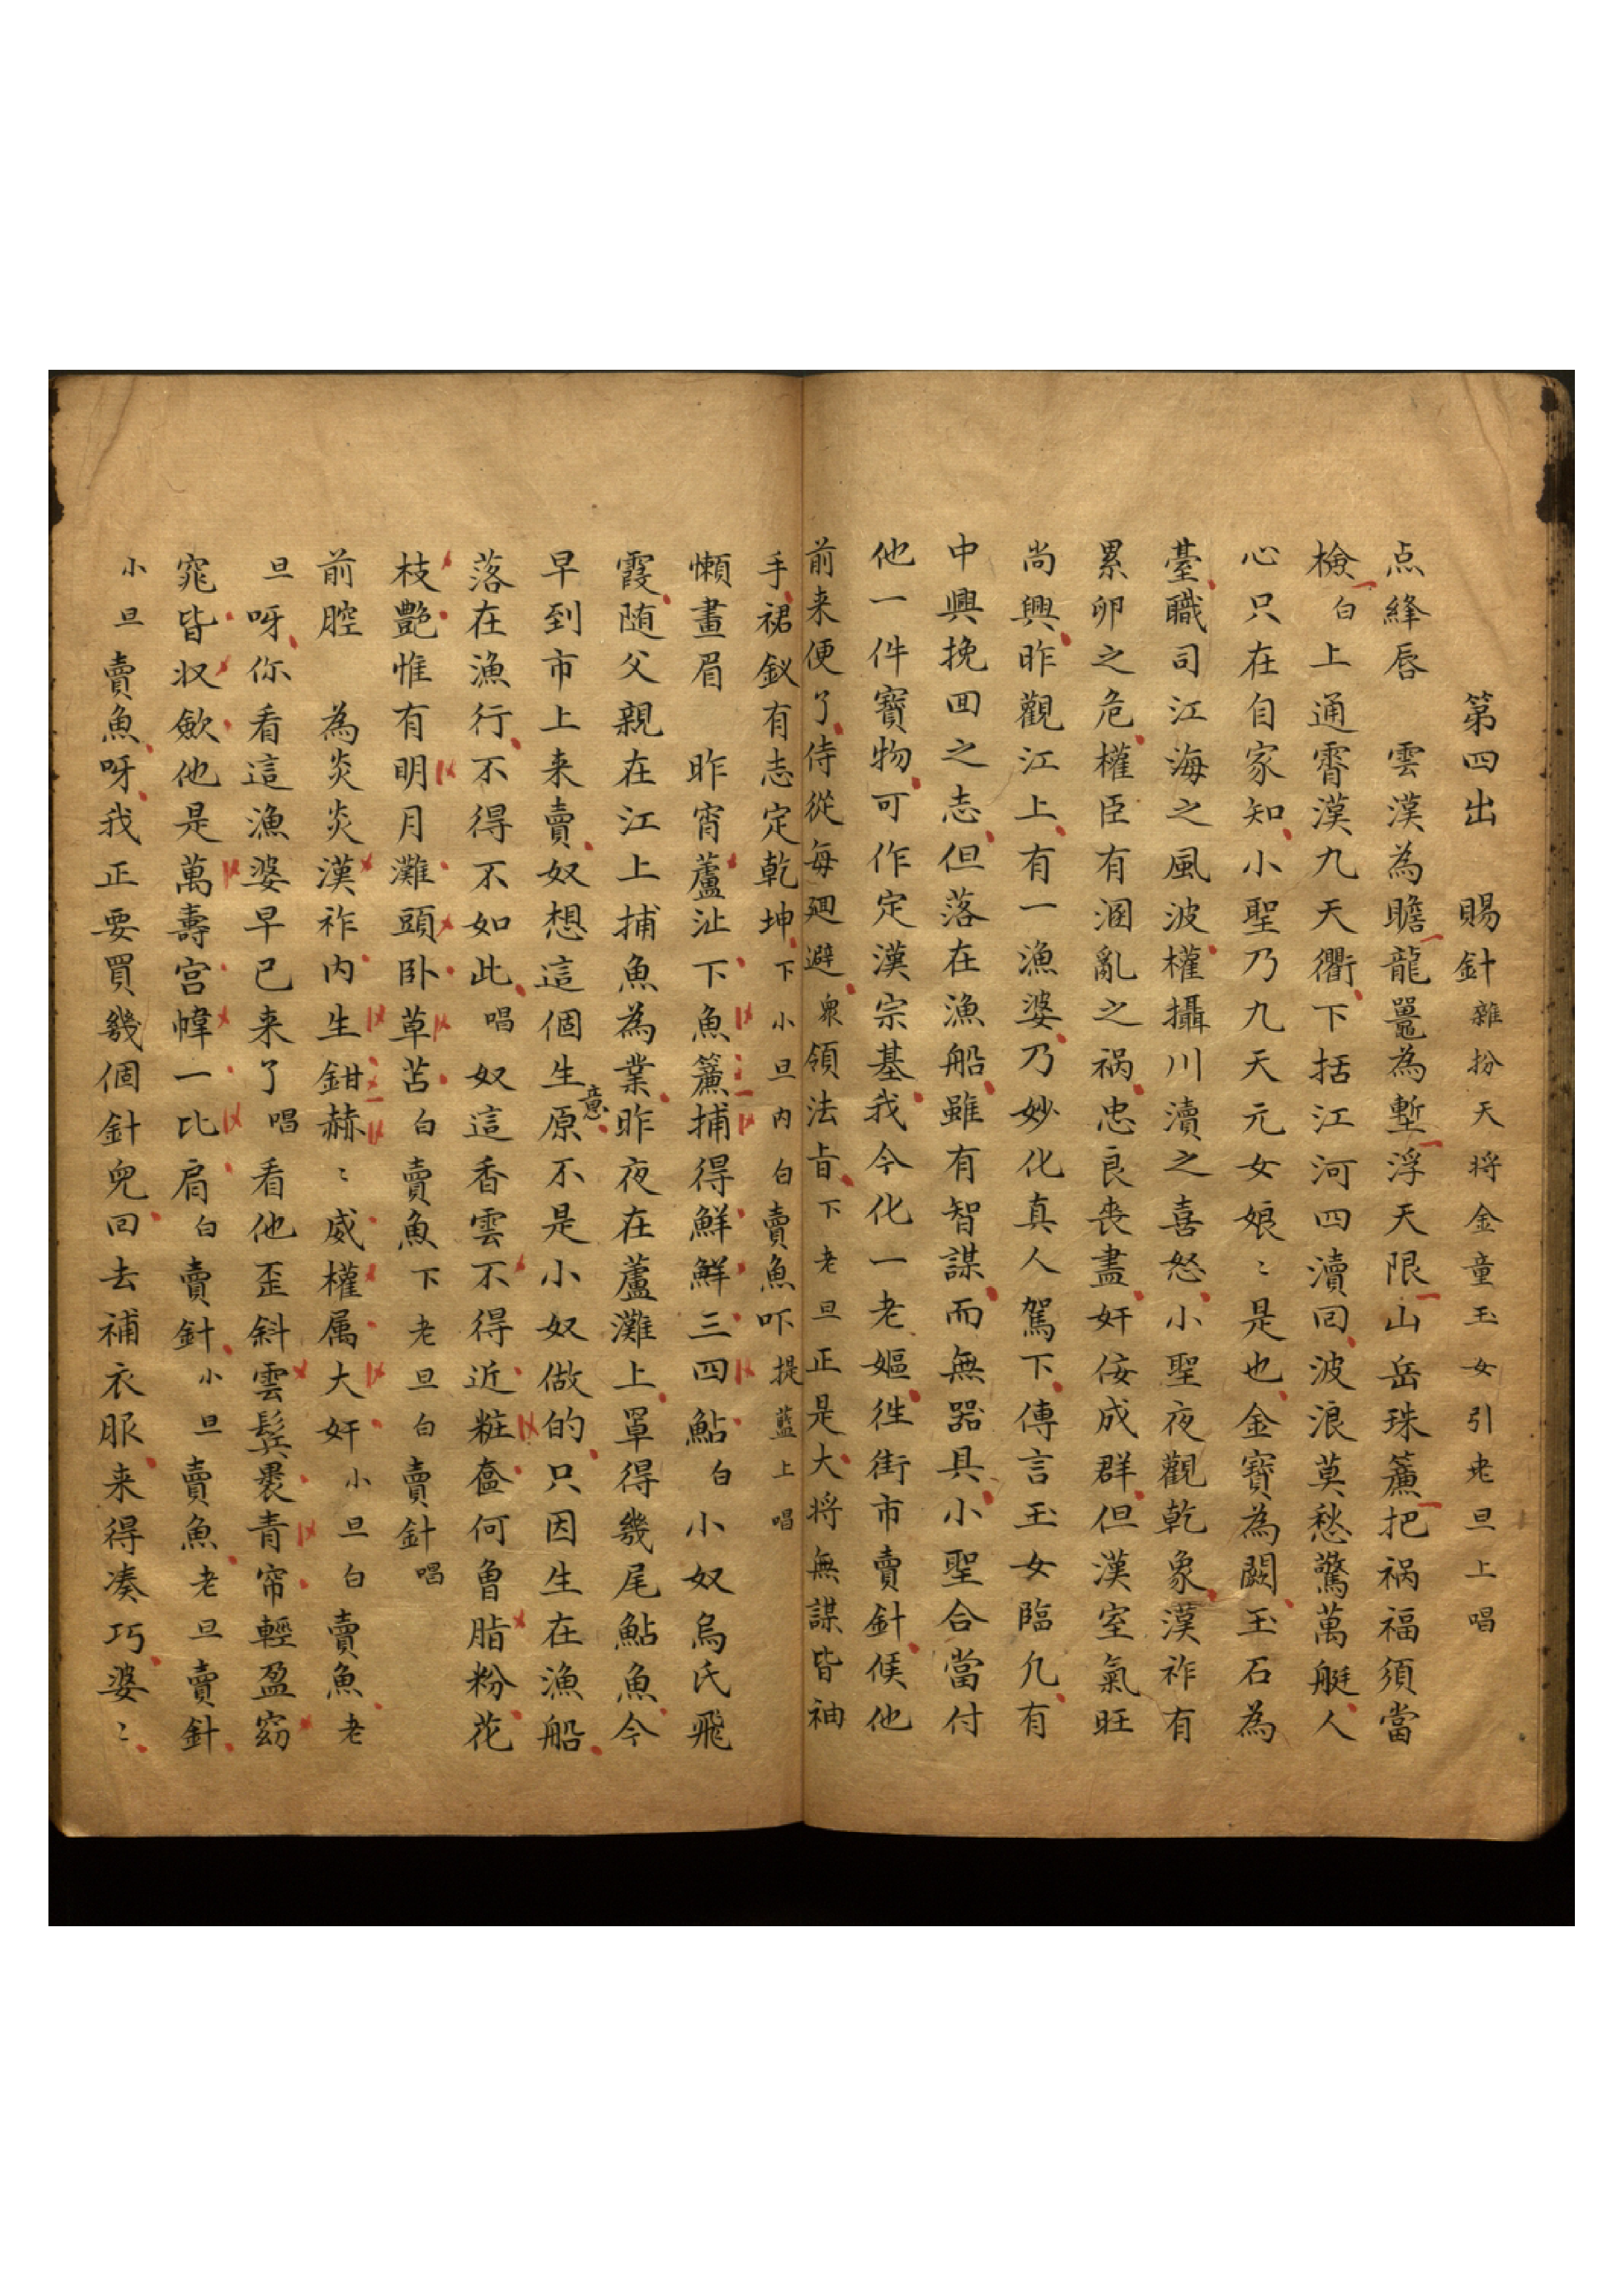 第四出 賜針 雜扮天将金童玉女引老旦上唱
点絳唇 雲漢為瞻龍鼉為塹浮天限山岳珠簾把祸福須當
檢 白 上通霄漢九天衢下括江河四瀆囘波浪莫愁驚萬艇人
心只在自家知小聖乃九天元女娘〻是也金寶為闕玉石為
臺職司江海之風波權攝川瀆之喜怒小聖夜觀乾象漢祚有
累卵之危權臣有溷亂之祸忠良喪盡奸佞成群但漢室氣旺
尚興昨觀江上有一漁婆乃妙化真人駕下傳言玉女臨凡有
中興挽囬之志但落在漁船雖有智謀而無器具小聖合當付
他一件寶物可作定漢宗基我今化一老嫗徃街市賣針候他
前来便了侍從每廻避 衆 領法旨 下 老旦 正是大将無謀皆袖
手裙釵有志定乾坤 下 小旦内白 賣魚吓 提藍上唱
懶畫眉 昨宵蘆沚下魚簾捕得鮮鮮三四鮎 白 小奴烏氏飛
霞随父親在江上捕魚為業昨夜在蘆灘上罩得幾尾鮎魚今
早到市上来賣奴想這個生意原不是小奴做的只因生在漁船
落在漁行不得不如此 唱 奴這香雲不得近粧奩何曾脂粉花
枝艷惟有明月灘頭卧草苫 白 賣魚 下 老旦白 賣針 唱
前腔 為炎炎漢祚内生鉗赫〻威權属大奸 小旦白 賣魚 老
旦 呀你看這漁婆早已来了 唱 看他歪斜雲鬓裹青帘輕盈窈
窕皆収歛他是萬壽宫幃一比肩 白 賣針 小旦 賣魚 老旦 賣針
小旦 賣魚呀我正要買幾個針兒回去補衣服来得凑巧婆〻